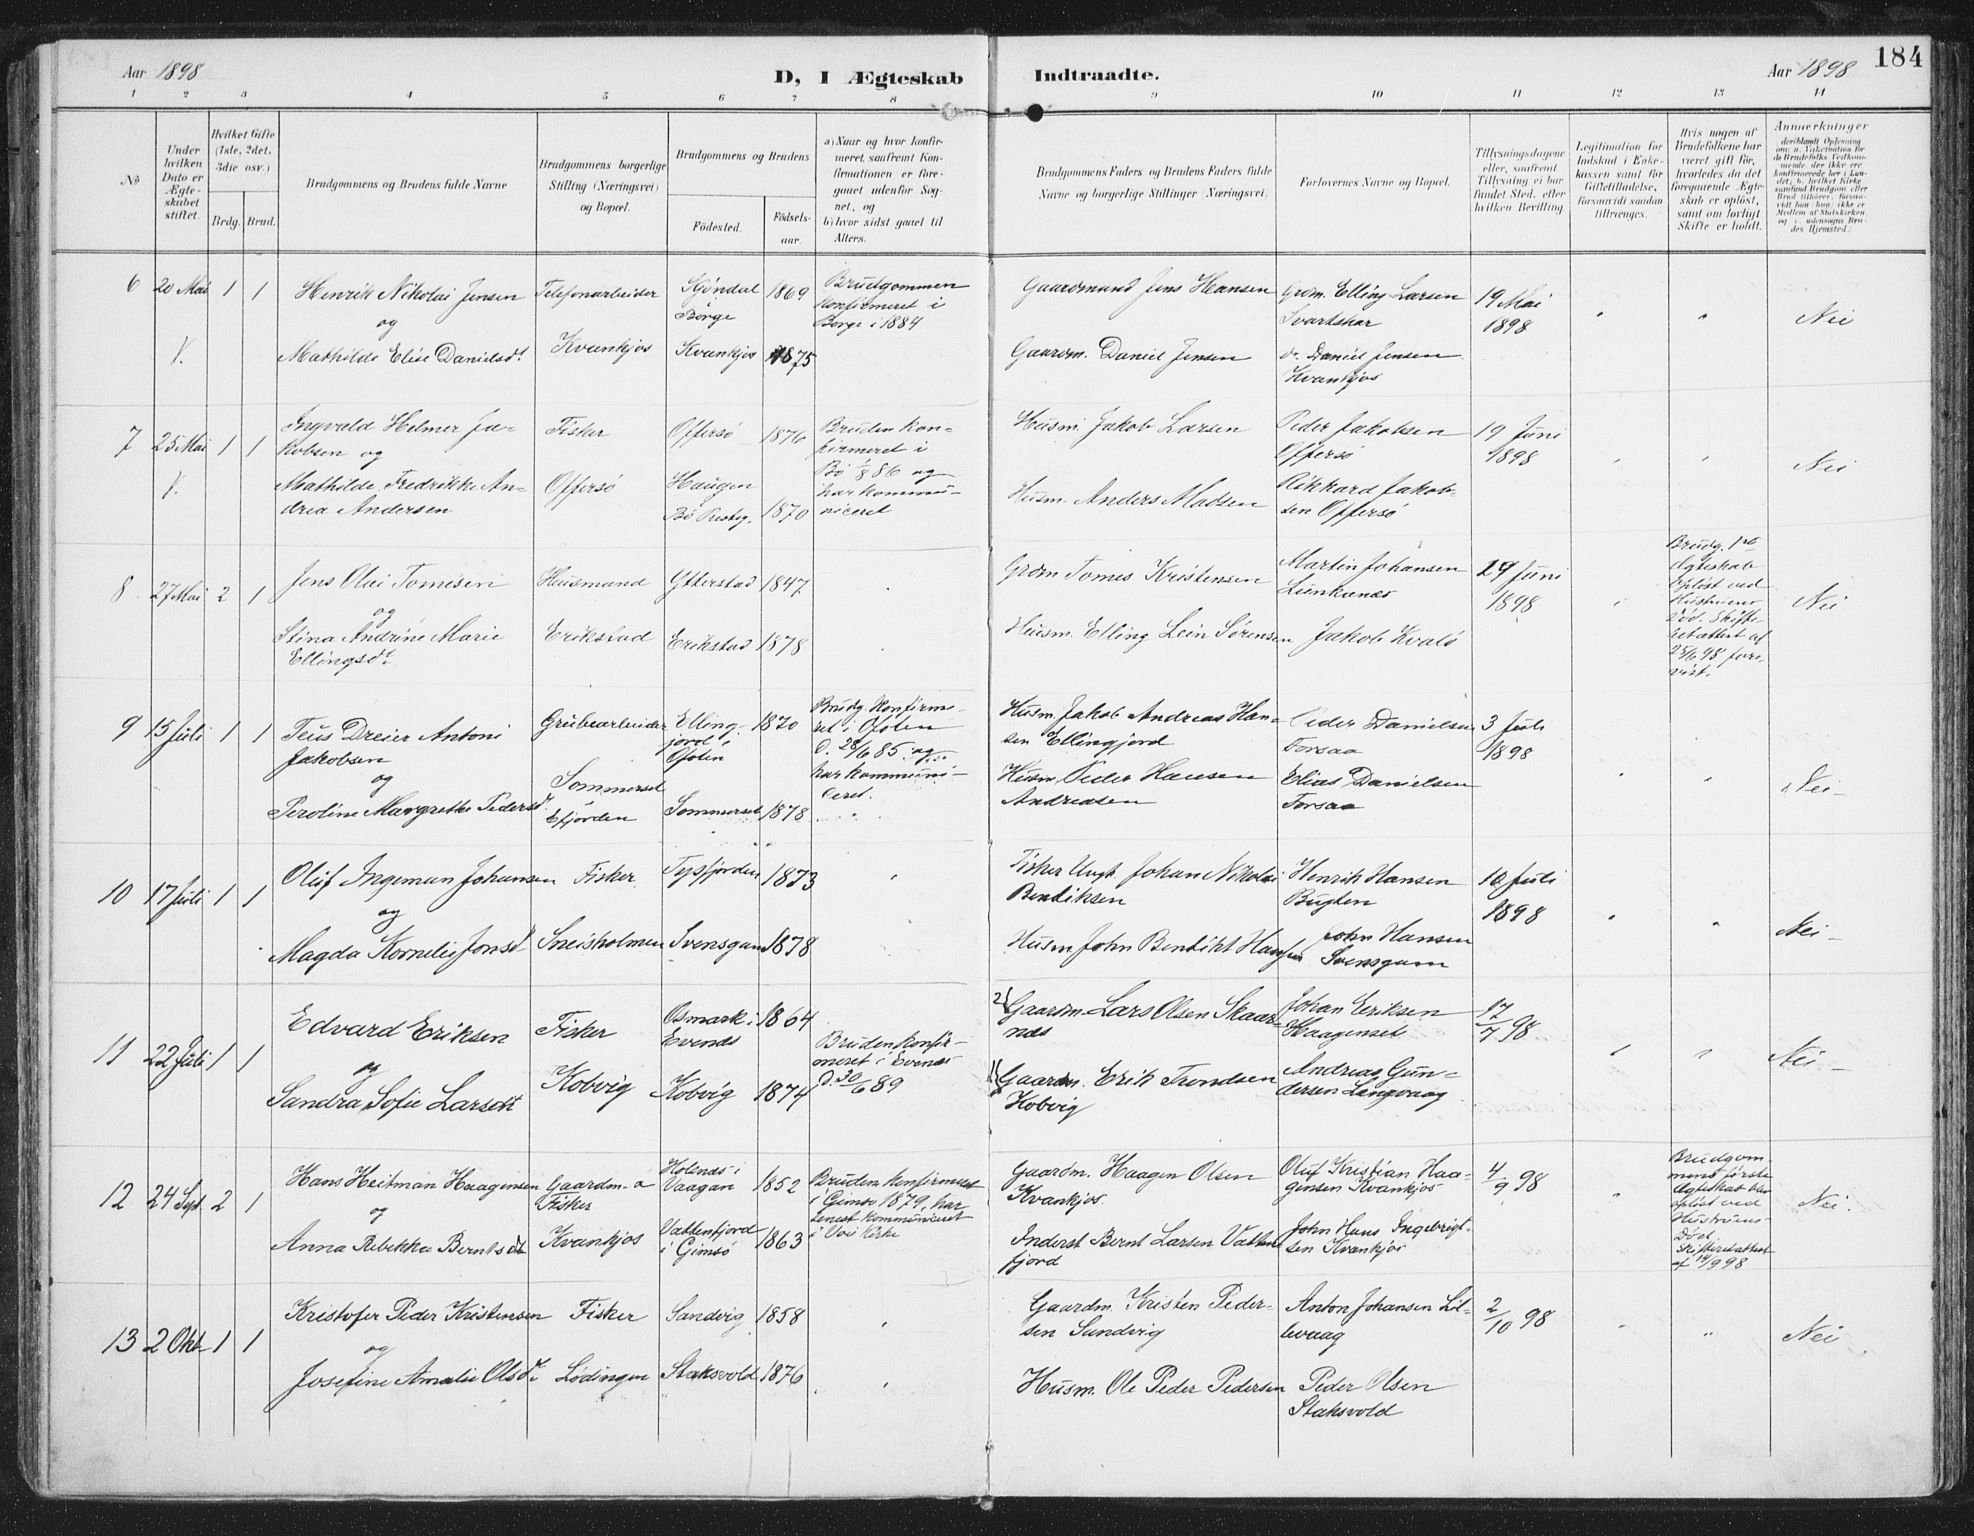 184
Aar 1898
D, I Ægteskab Indtraadte.
Aar 1898
1 2 3 4 5 6 7 8 9 10 11 12 13 14
No
Under hvilken Dato er Ægteskabet stiftet.
Hvilket Gifte (1ste, 2det, 3die osv.)
Brdg. Brud.
Brudgommens og Brudens fulde Navne
Brudgommens borgerlige Stilling (Næringsvei) og Bopæl.
Brudgommens og Brudens
Fødested. Fødselsaar.
a) Naar og hvor konfirmeret, saafremt Konfirmationen er foregaaet udenfor Sognet, og
b) hvor sidst gaaet til Alters.
Brudgommens Faders og Brudens Faders fulde Navne og borgerlige Stillinger (Næringsvei).
Forlovernes Navne og Bopæl.
Tillysningsdagene eller, saafremt Tillysning ei har fundet Sted, efter hvilken Bevilling
Legitimation for Indskud i Enkekassen samt for Giftetilladelse, forsaavidt saadan tiltrænges.
Hvis nogen af Brudefolkene har været gift før, hvorledes da det foregaaende Ægteskab er opløst, samt om lovligt Skifte er holdt.
Anmerkninger
6 20 Mai 1 1
Henrik Nikolai Jensen
og
Mathilde Elise Danielsdt
Telefonarbeider
Kvankjos
Sjöndal
Borge
1869
Kvankjos 1875
Brudgommen
konfirmeret i
Borge i 1884
Gaardmand Jens Hansen
Gaardm. Daniel Jensen
Grdm. Elling Larsen
Svartskar
do. Daniel Jensen
Kvankjos
19 Mai
1898
Nei
7 25 Mai 1 1
Ingvald Helmer Ja-
kobsen og
Mathilde Fredrikke An-
drea Andersen
Fisker
Offersö
Offersö 1876
Haugen
Bö Prestg. 1870
Bruden kon-
firmeret i
Bö 1/8 86 og
har kommu-
niceret
Husm. Jakob Larsen
Husm. Anders Madsen
Peder Jakobsen
Offersö
Rikkard Jakob-
sen Offersö
19 Juni
1898
Nei
8 27 Mai 2 1
Jens Olai Tomesen
og
Stina Andrine Marie
Ellingsdt.
Husmand
Erikstad
Ytterstad 1847
Erikstad 1878
Grdm Tomes Kristensen
Husm. Elling Lein Sörensen
Martin Johansen
Lunkanes
Jakob Kvalö
29 Juni
1898
Brudg. 1ste
Ægteskab
oplöst ved
Hustruens
Död. Skifte-
retsattest af
25/6 98 fore-
vist.
Nei
9 15 Juli 1 1
Teus Dreier Antoni
Jakobsen
og
Peroline Margrethe Pedersdt.
Grubearbeider
Sommerset
i
Efjorden
Elling-
jord i
Ofoten
1870
Sommerset 1878
Brudg. konfirme-
ret i Ofoten
d. 28/6 85 og
har kommuni-
ceret.
Husm. Jakob Andreas Han-
sen Ellingjord
Husm. Peder Hansen
Andreasen
Peder Danielsen
Forsaa
Elias Danielsen
Forsaa
3 Juli
1898
Nei
10 17 Juli 1 1
Oluf Ingeman Johansen
og
Magda Kornelie Jonsdt
Fisker
Sneisholmen
Tysfjorden 1873
Svensgam 1878
Fisker Ungk. Johan Nikolai
Bendiksen
Husm John Bendikt Hansen
Henrik Hansen
Bugten
John Hansen
Svensgam
10 Juli
1898
Nei
11 22 Juli 1 1
Edvard Eriksen
og
Sandra Sofie Larsdt
Fisker
Kobvig
Osmark i
Evenes
1864
Kobvig 1874
Bruden konfir-
meret i Evenes
d. 30/6 89
2) Gaardm. Lars Olsen Skaar-
næs
1) Gaardm. Erik Trondsen
Kobvig
Johan Eriksen
Haagenset
Andreas Gun-
dersen Lengvaag
17/7 98
Nei
12 24 Sept. 2 1
Hans Heitman Haagensen
og
Anna Rebekka Berntsdt
Gaardm. o
Fisker
Kvankjos
Holenæs i
Vaagan
1852
Vattenfjord
i Gimsö
1863
Bruden konfirmeret
i Gimsö 1879, har
senest kommuniceret
i Vor Kirke
Gaardm. Haagen Olsen
Kvankjos
Inderst Bernt Larsen Vatten-
fjord
Oluf Kristian Haa-
gensen Kvankjos
John Hans Ingebrigt-
sen Kvankjos
4/9 98
Brudgom-
mens förste
Ægteskab blev
oplöst ved
Hustruens
Död.
Skifteretsattest
af 14/9 98
Nei.
13 2 Okt. 1 1
Krestofer Peder Kristensen
og
Josefine Amalie Olsdt.
Fisker
Lödingen
Sandvig 1858
Staksvold 1876
Gaardm. Kristen Peder-
sen Sandvig
Husm. Ole Peder Pedersen
Anton Johansen Lil-
levaag
Peder Olsen
Staksvold
2/10 98
Nei